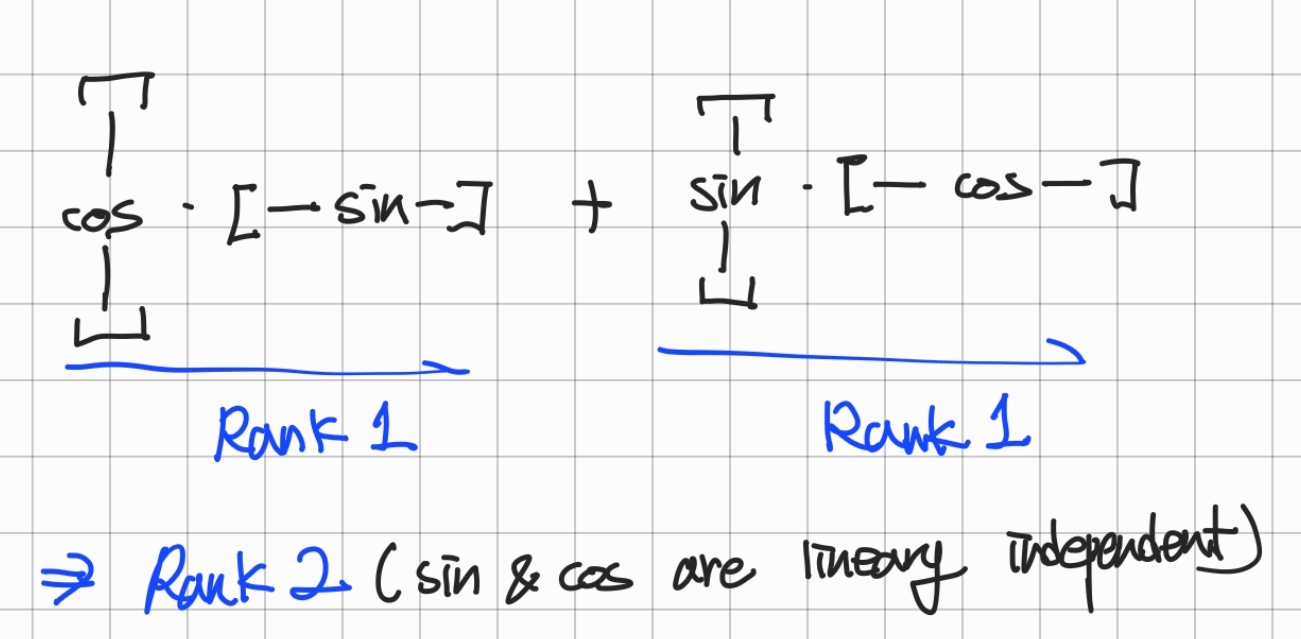 cos · [— sin —] + sin · [— cos —]
Rank 1 Rank 1
⇒ Rank 2 (sin & cos are lineary independent)